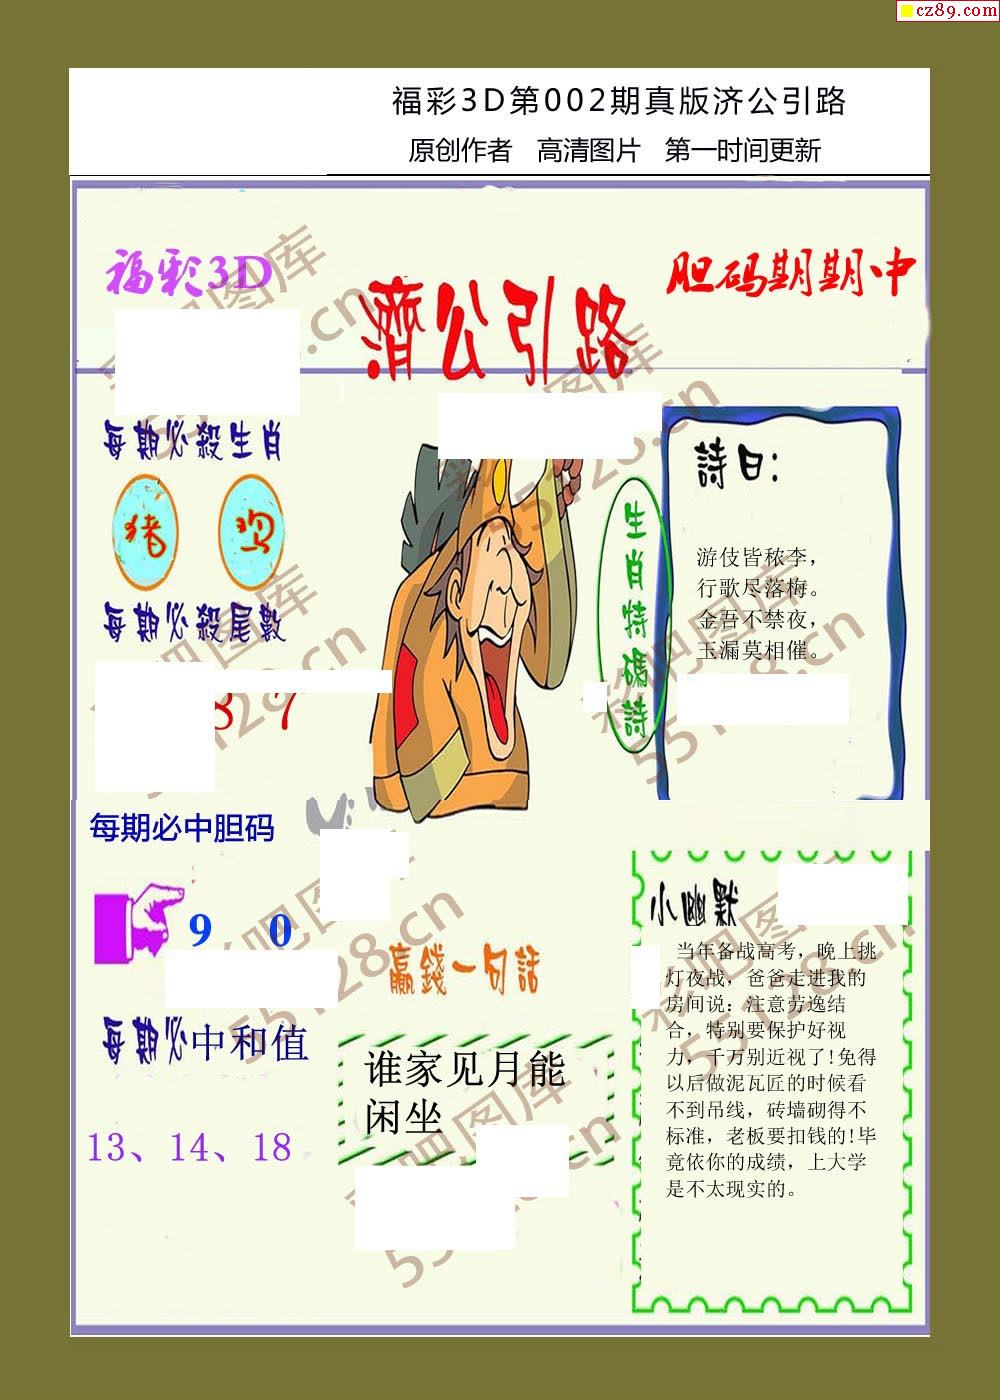 cz89.com
福彩3D第002期真版济公引路
原创作者 高清图片 第一时间更新
福彩3D
濟公引路
胆码期期中
每期必殺生肖
猪 鸡
每期必殺尾數
8 7
每期必中胆码
9 0
每期必中和值
13、14、18
生肖特碼詩
詩曰:
游伎皆秾李，
行歌尽落梅。
金吾不禁夜，
玉漏莫相催。
贏錢一句話
谁家见月能
闲坐
小幽默
当年备战高考，晚上挑
灯夜战，爸爸走进我的
房间说：注意劳逸结
合，特别要保护好视
力，千万别近视了!免得
以后做泥瓦匠的时候看
不到吊线，砖墙砌得不
标准，老板要扣钱的!毕
竟依你的成绩，上大学
是不太现实的。
彩吧图库
55128.cn